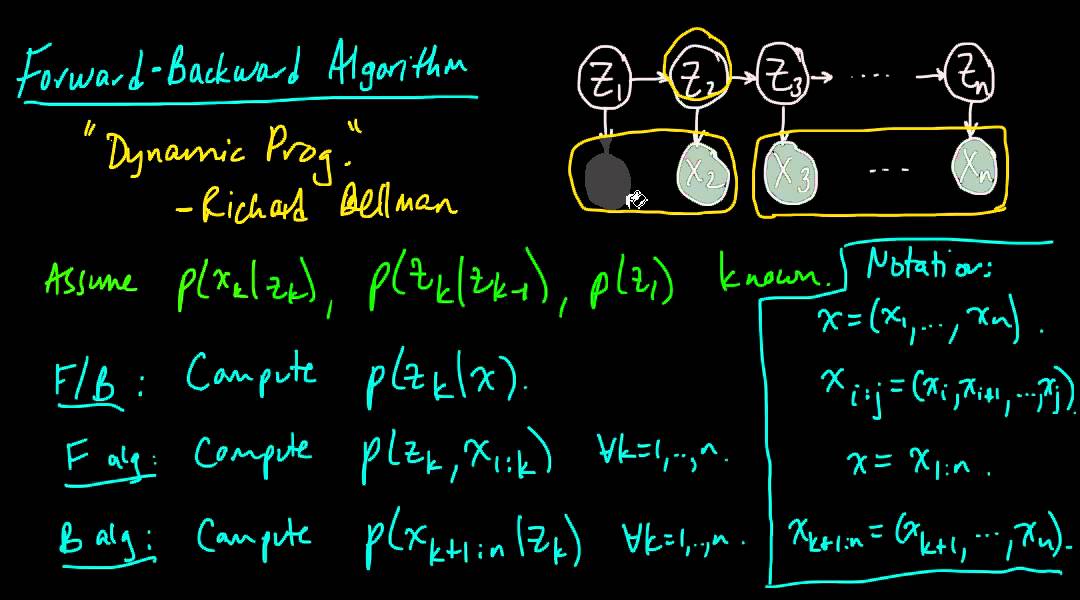 Forward-Backward Algorithm
"Dynamic Prog."
- Richard Bellman
Z₁ Z₂ Z₃ .... Zₙ
X₂ X₃ --- Xₙ
Assume p(xₖ|zₖ), p(zₖ|zₖ₋₁), p(z₁) known.
F/B: Compute p(zₖ|x).
F alg: Compute p(zₖ, x₁:ₖ) ∀k=1,..,n.
B alg: Compute p(xₖ₊₁:ₙ|zₖ) ∀k=1,..,n.
Notation:
x=(x₁,...,xₙ).
xᵢ:ⱼ=(xᵢ,xᵢ₊₁,...,xⱼ)
x= x₁:ₙ.
xₖ₊₁:ₙ=(xₖ₊₁,...,xₙ).